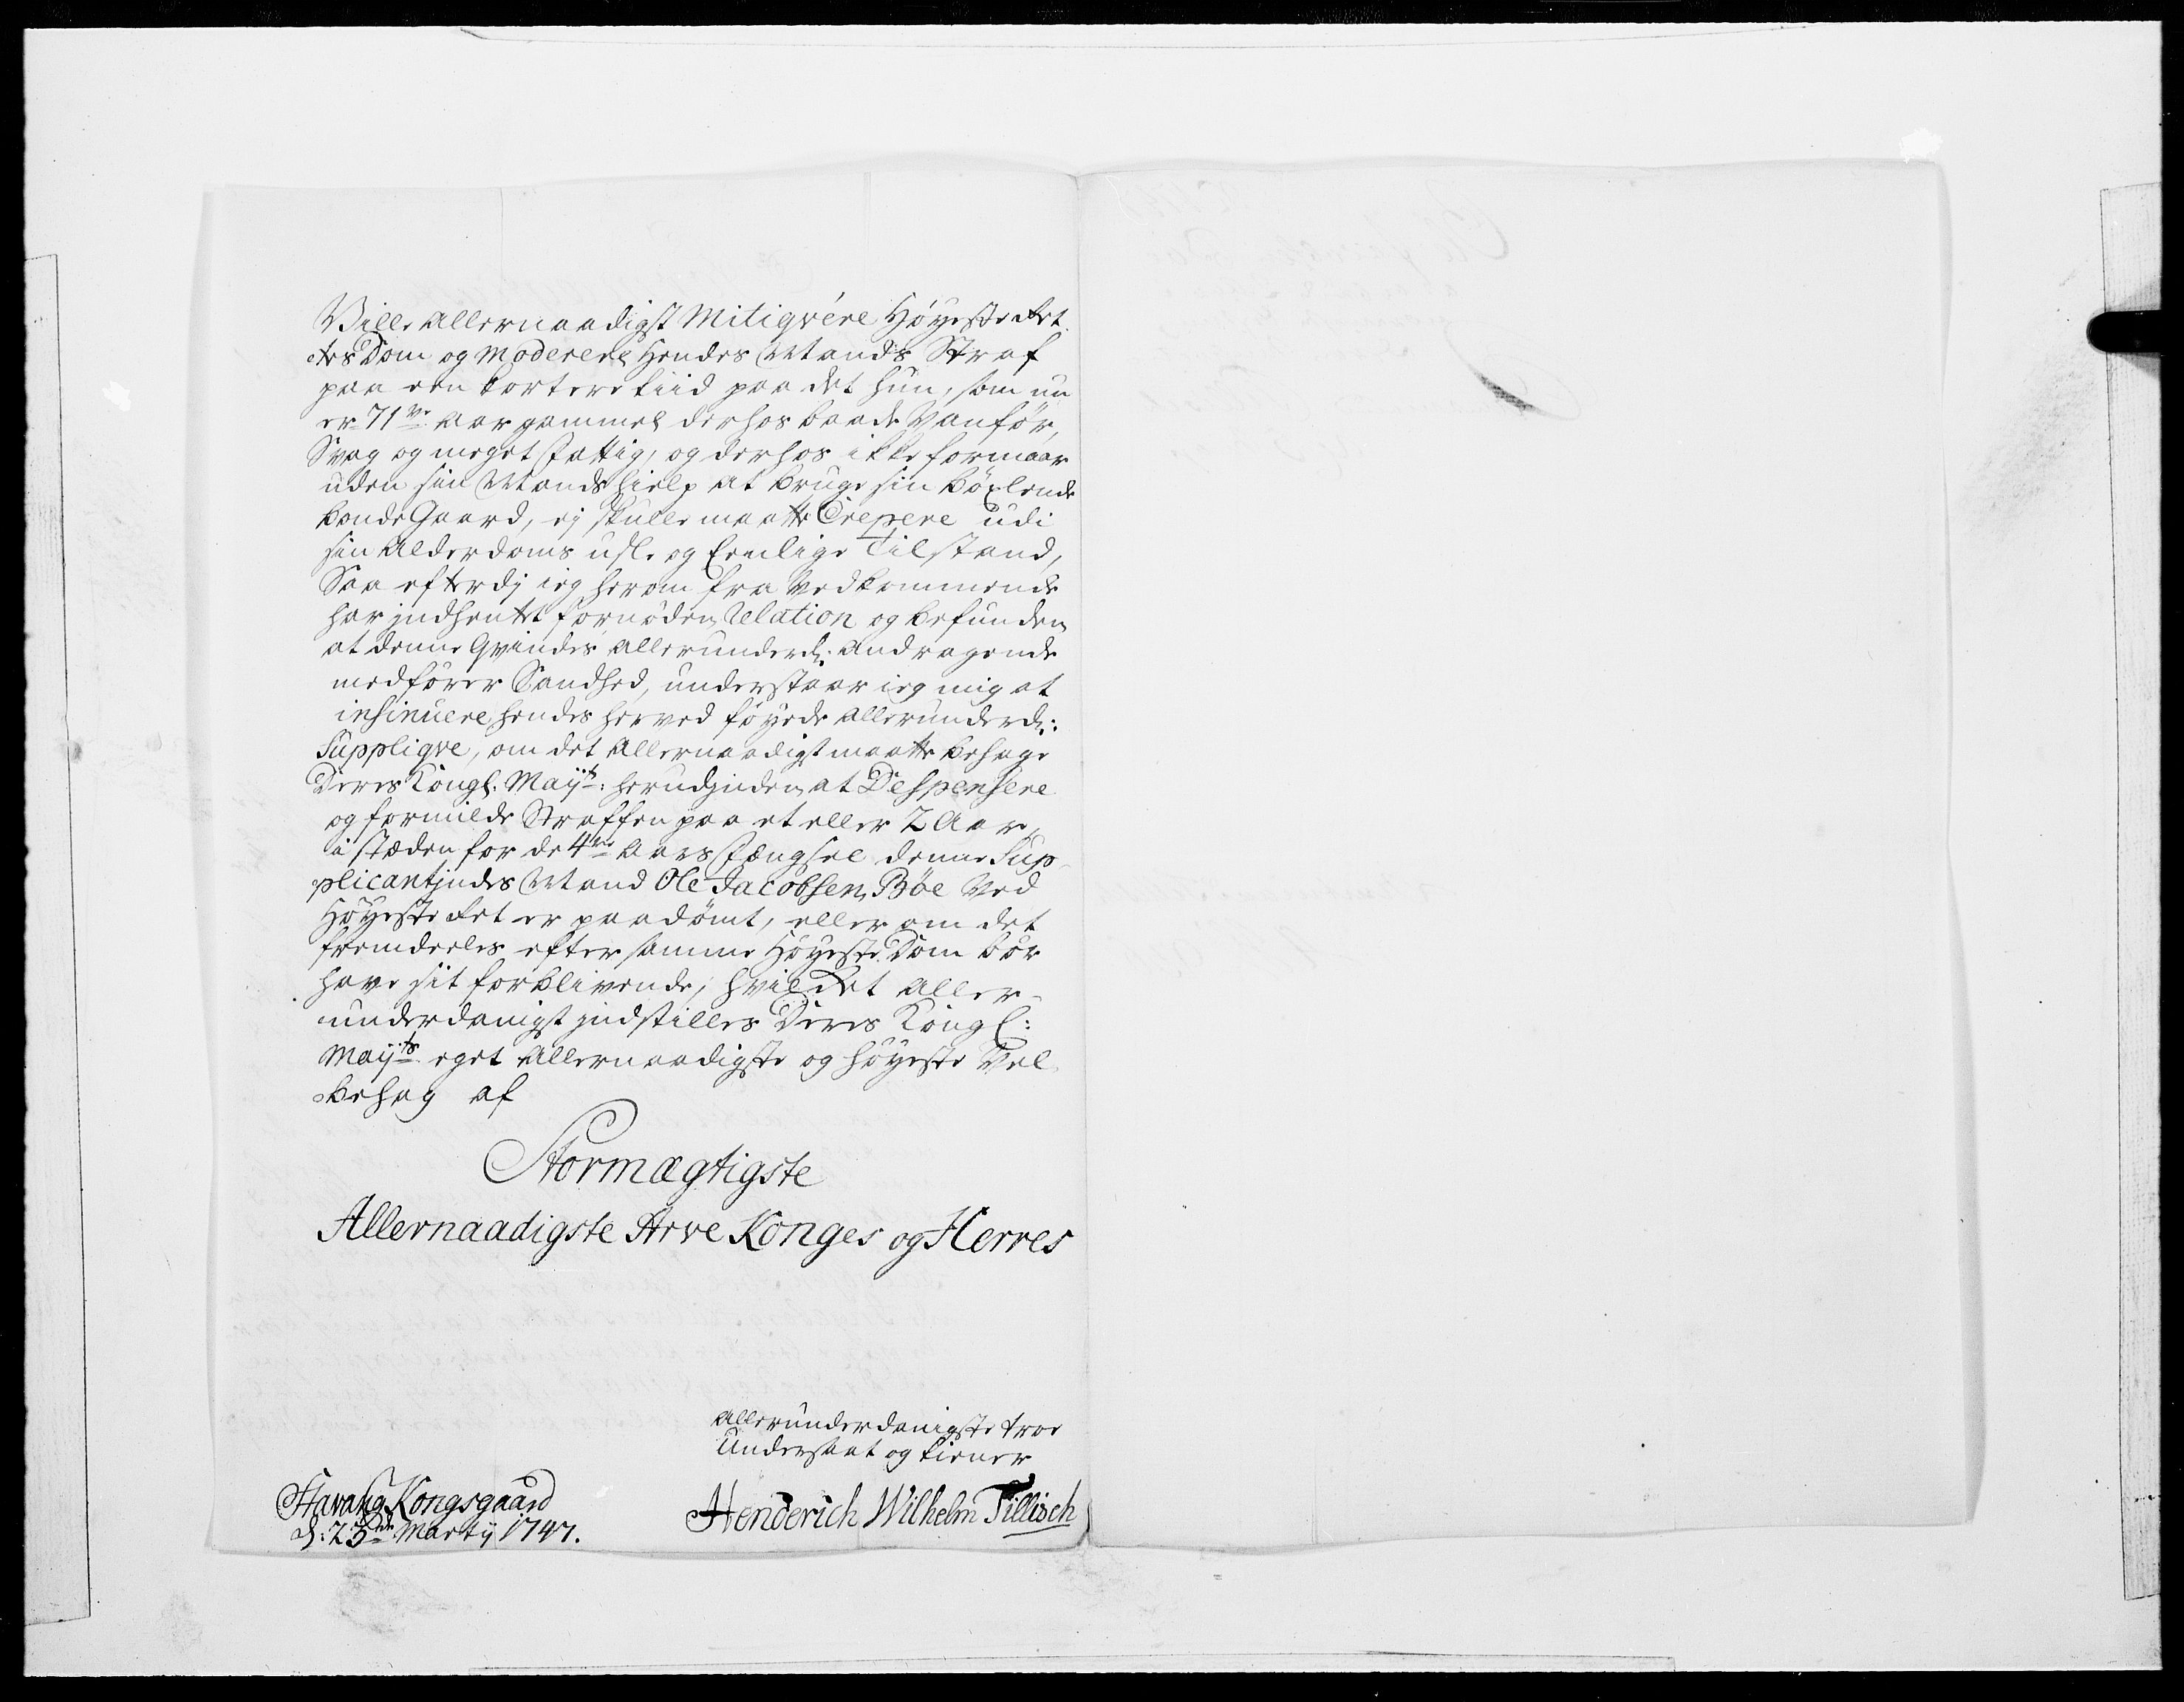 Ville allernaadigst Mitiqvére Høyeste Ret
etes Dom og Moderere Hendes Mands Straf
paa een kortere tiid paa det hun, som nu
er 71ve Aar gammel derhos baade Vanfør,
Svag og meget fattig, og derhos ikke formaar
uden sin Mands hielp at bruge sin böxlende
bonde Gaard, ej skulle maatte Crepere udi
sin Alderdoms usle og Eenlige Tilstand,
Saa efterdj ieg herom fra Vedkommende
har jndhentet fornøden Relation og befunden
at denne Qvindes allerunderd: Andragende
medfører Sandhed, understaar ieg mig at
insinuere hendes herved föyede allerunderd:
Suppliqve, om det Allernaadigst maatte behage
Deres Kongl: Mayt: herudjnden at Despensere
og formilde Straffen paa et eller 2 Aar,
i stæden for de 4re Aars Fængsel denne Sup-
plicantjndes Mand Ole Jacobsen Böe Ved
Høyeste Ret er paadömt, eller om det
fremdeeles efter samme Høyeste Dom bör
have sit forblivende, hvilket aller-
underdanigst jndstilles Deres Kongl:
Mayts eget Allernaadigste og høyeste Vel
behag af
Stormægtigste
Allernaadigste Arve Konges og Herres
allerunderdanigste troe
Undersaat og tiener
Stavang Kongsgaard
d: 23de Martij 1747.
Henderich Wilhelm Tillisch